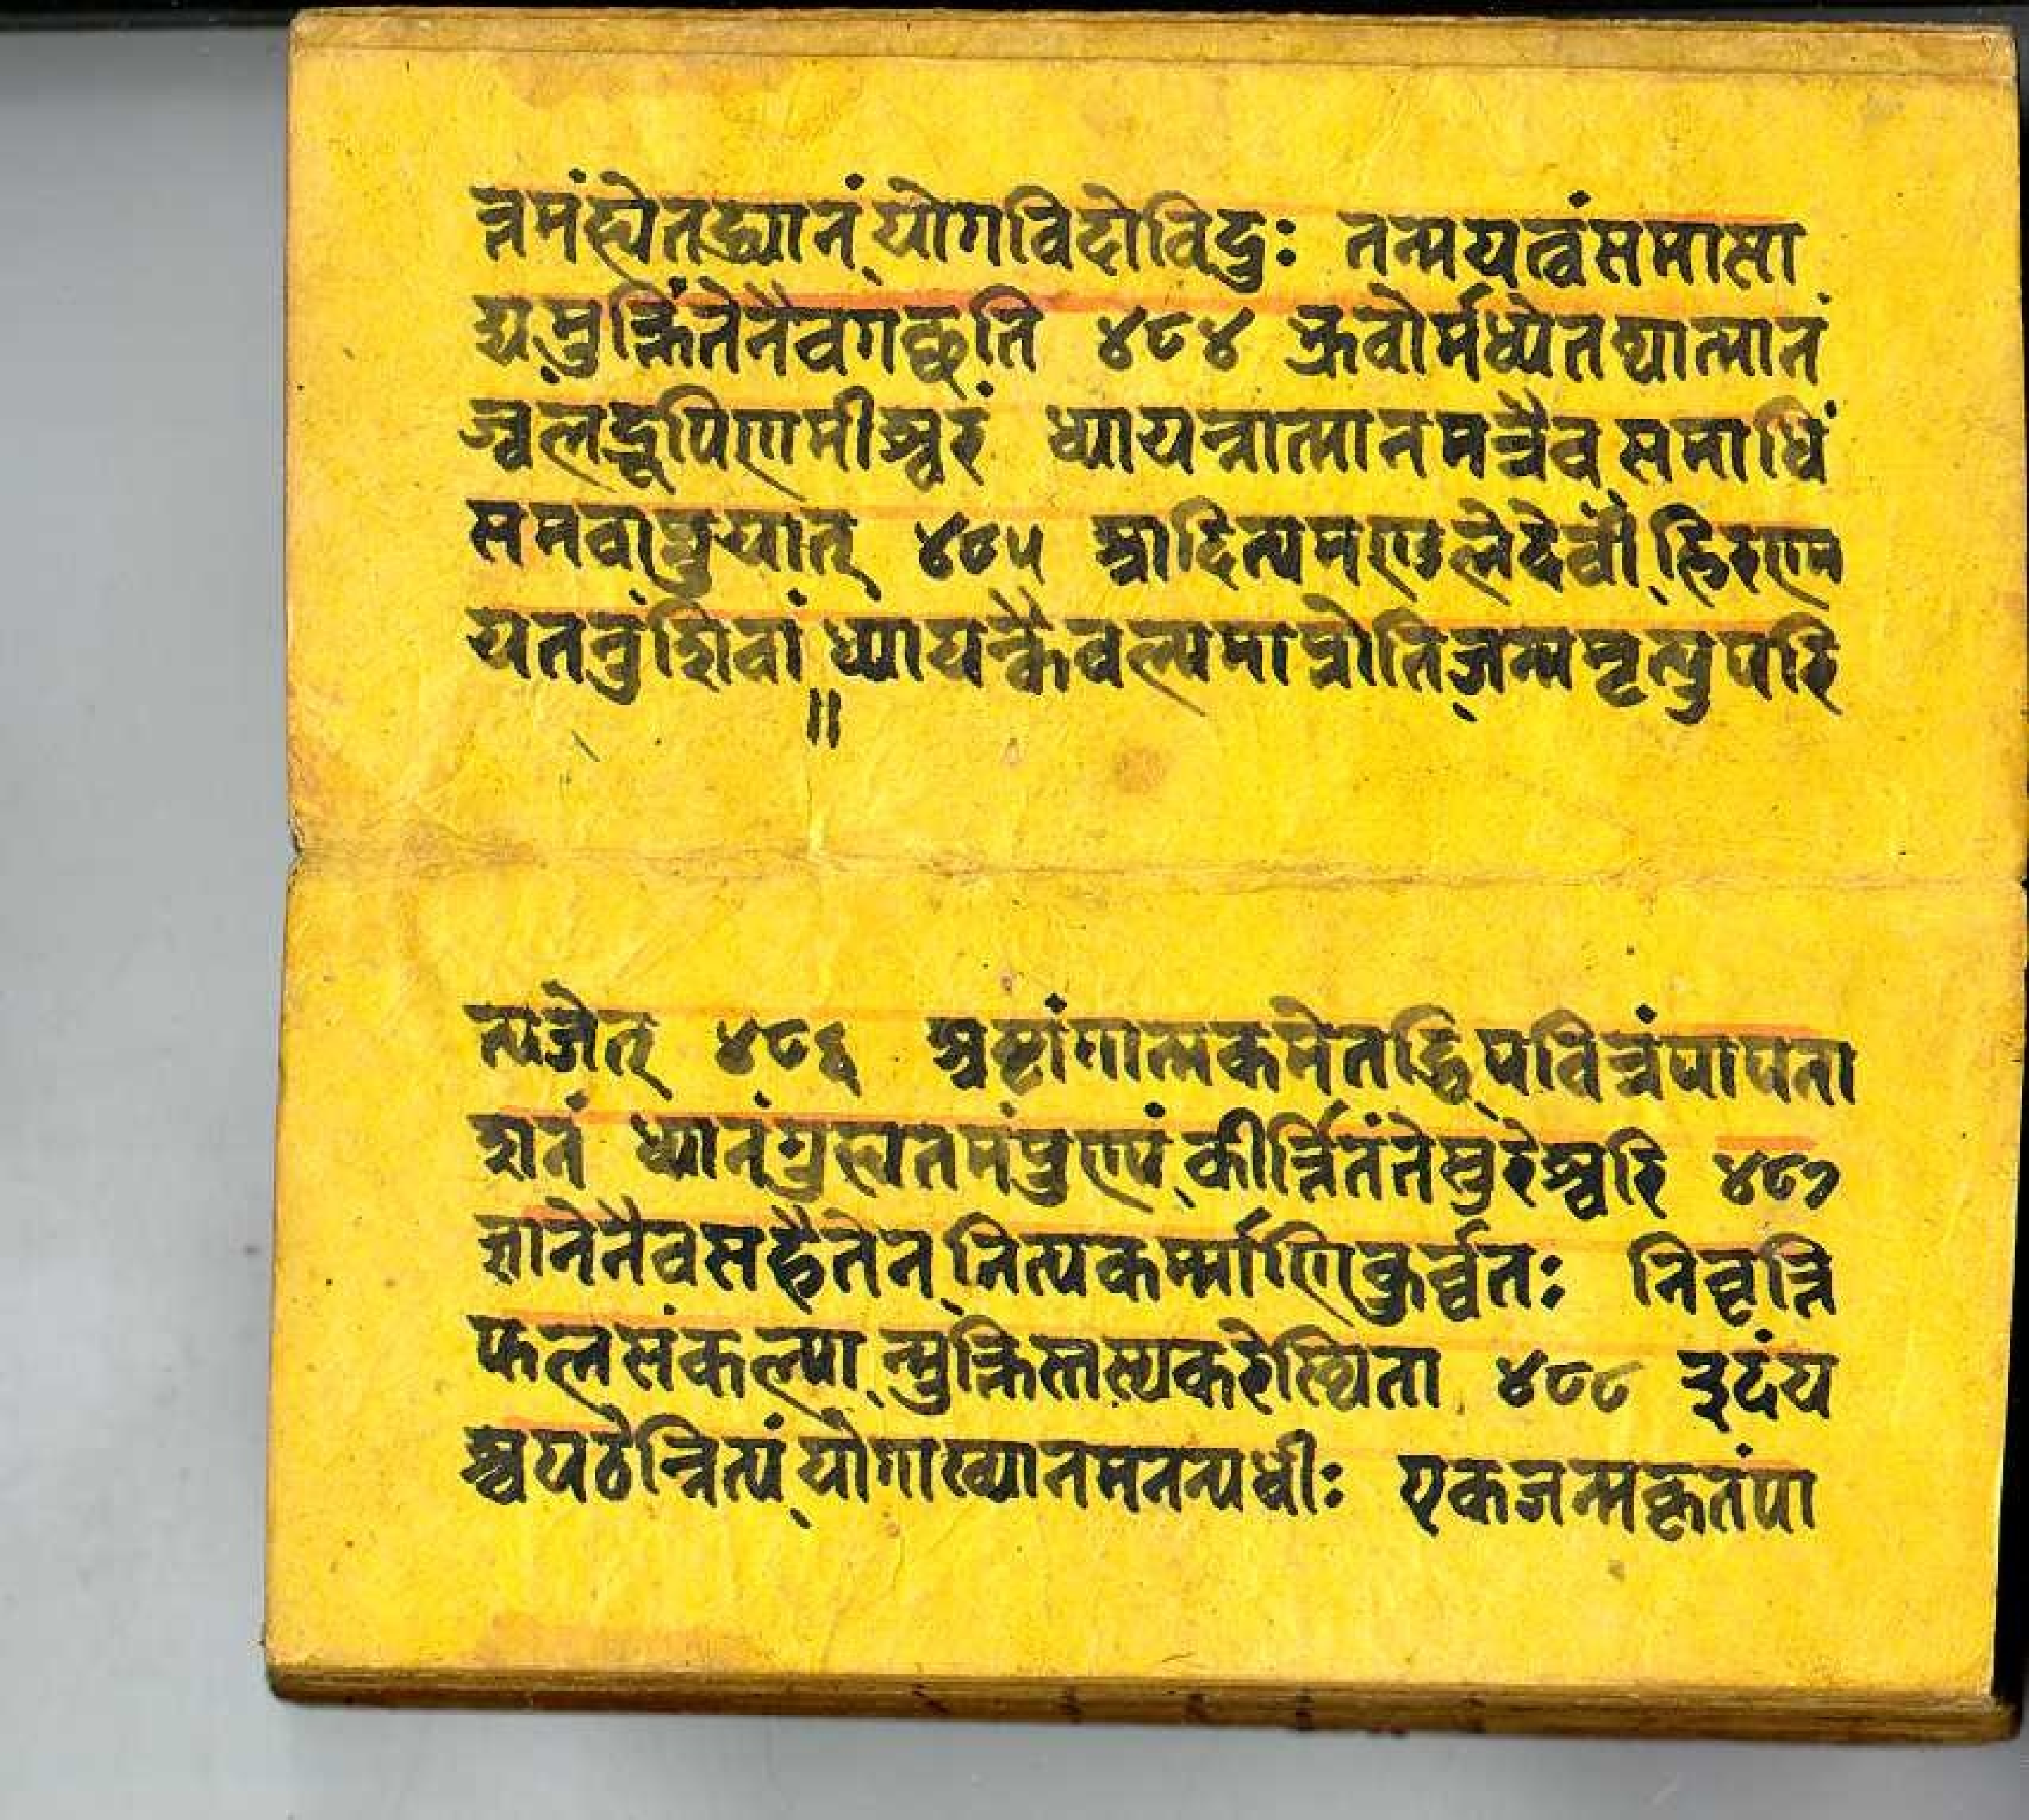 त्तमंह्येतद्ध्यानं योगविदोविदुः तन्मयत्वंसमासा
द्यमुक्तिंतेनैवगच्छति ४८४ भ्रुवोर्मध्येतथात्मानं
ज्वलद्रूपिणमीश्वरं ध्यायन्नात्मानमत्रैव समाधिं
समवाप्नुयात् ४८५ आदित्यमण्डलेदेवीं हिरण्म
यतनुंशिवां ध्यायन्कैवल्यमाप्नोतिजन्ममृत्युपरि
॥
त्यजेत् ४८६ अष्टांगात्मकमेतद्धिपवित्रंपापना
शनं ध्यानंगुह्यतमंपुण्यंकीर्त्तितंतेसुरेश्वरि ४८७
ज्ञानेनैवसहैतेन नित्यकर्म्माणिकुर्व्वतः निवृत्ति
फलसंकल्पा न्मुक्तिस्तस्यकरेस्थिता ४८८ इदंय
श्चपठेन्नित्यं योगाख्यानमनन्यधीः एकजन्मकृतंपा